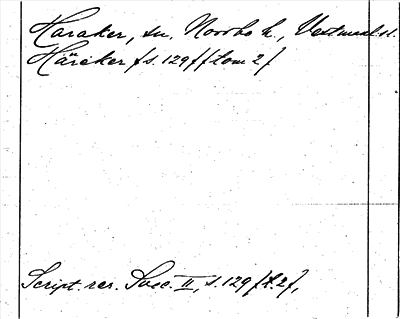 Haraker, sn. Norrbo h., Vestmanl.
Häräker /s. 129/ /tom 2/
Script. rer. Svec. II, s. 129 /t. 2/,